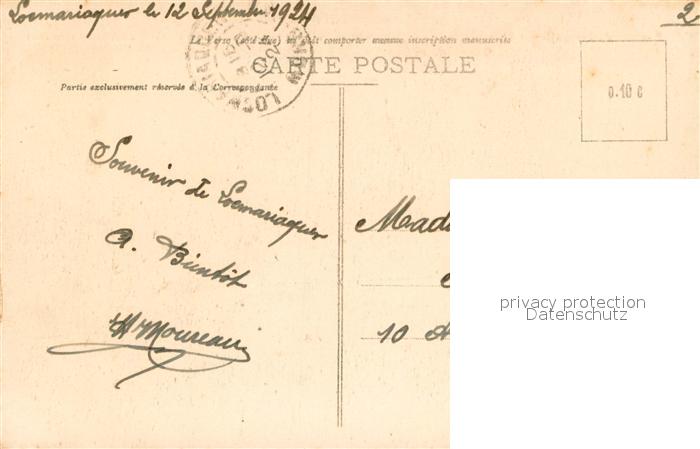 Locmariaquer le 12 Septembre 1924
2
Le Verso (côté Vue) ne doit comporter aucune inscription manuscrite
CARTE POSTALE
Partie exclusivement réservée à la Correspondante
0.10 c
Souvenir de Locmariaquer
A. Bientôt
Moureau
Mad
10 A
privacy protection
Datenschutz